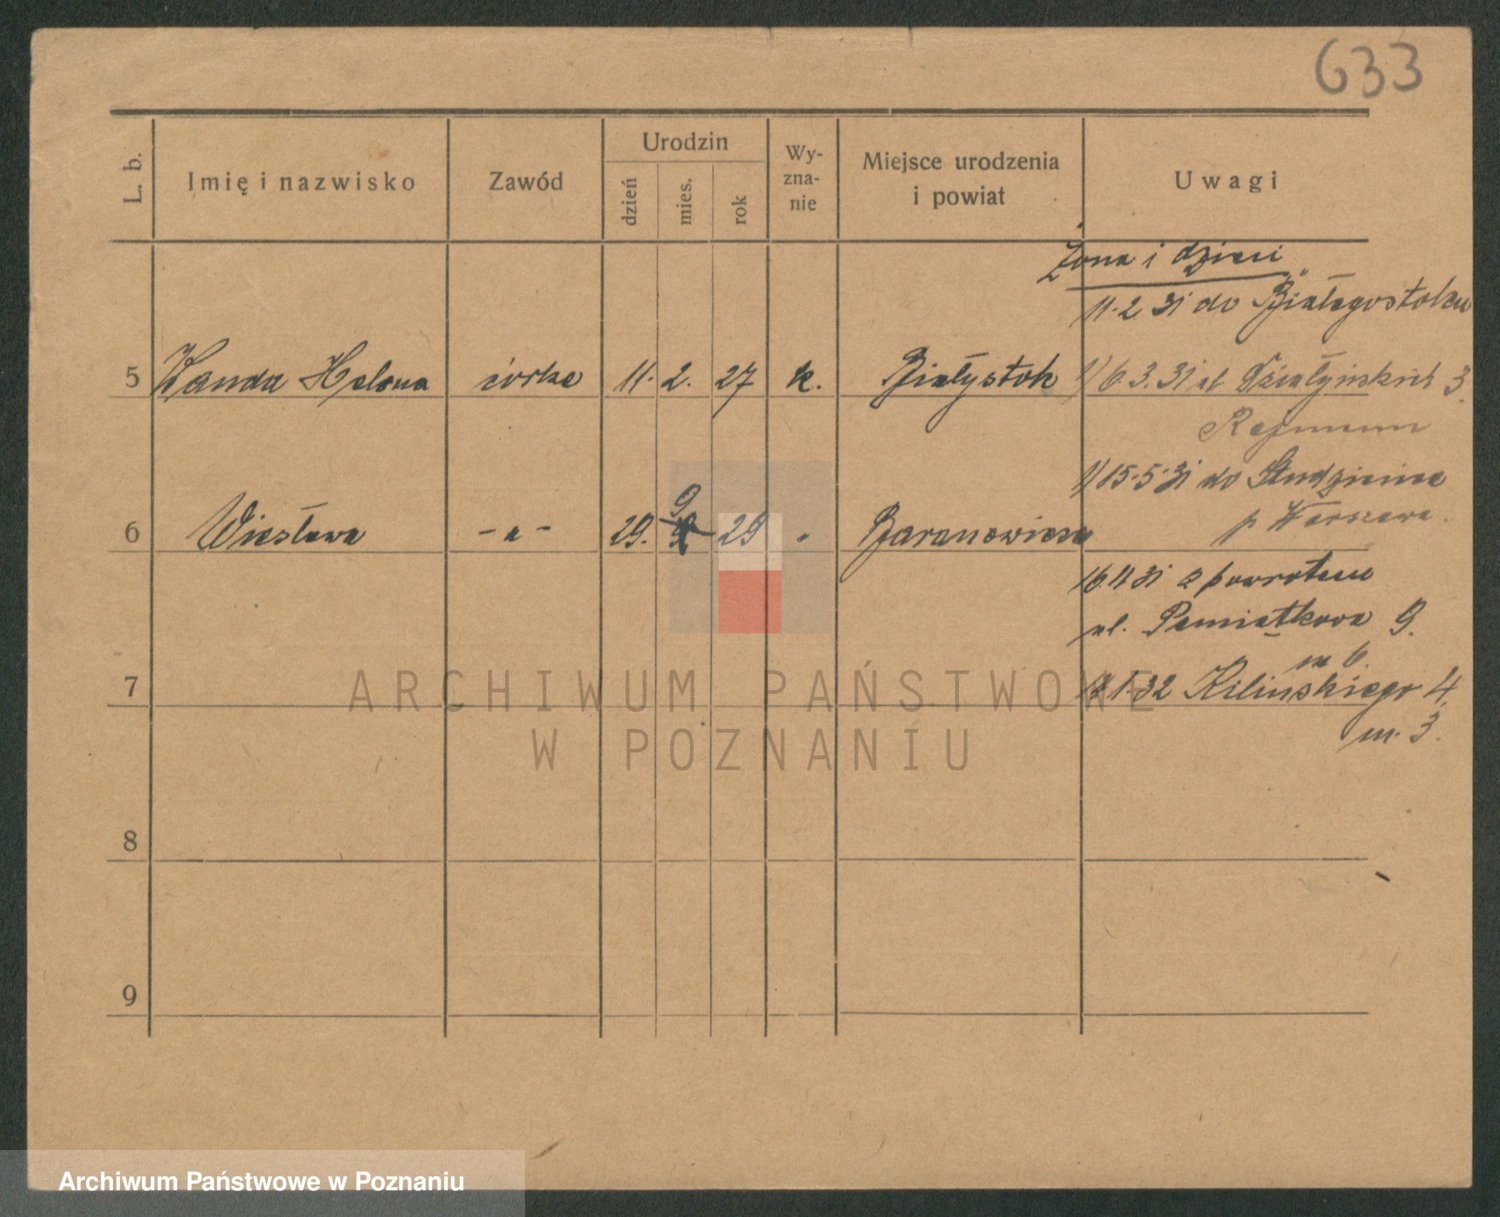 633
L. b.
Imię i nazwisko
Zawód
Urodzin
dzień
mies.
rok
Wy-
zna-
nie
Miejsce urodzenia
i powiat
Uwagi
Żona i dzieci
11.2 31 do Białegostoku
5 Wanda Helena córka 11. 2. 27 k. Białystok 6.3.31 ul Działyńskich 3.
15.5.31 do Studzieniec
p Warszawa.
6 Wiesława -"- 29. 9 29 " Baranowicze
16 11 31 z powrotem
ul. Pamiątkowa 9.
m 6.
7 1.32 Kilińskiego 4
m. 3.
8
9
ARCHIWUM PAŃSTWOWE
W POZNANIU
Archiwum Państwowe w Poznaniu